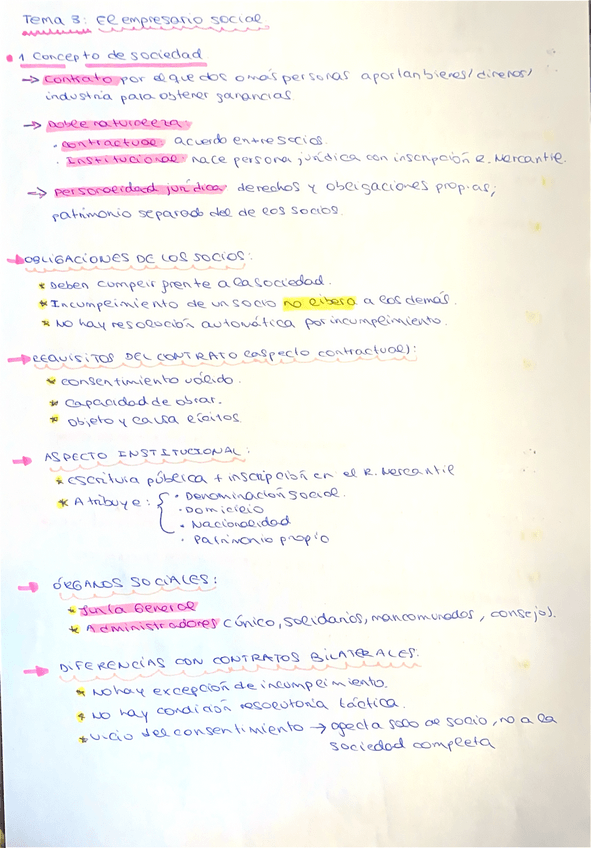 Tema 3: El empresario social
1 Concepto de sociedad
→ Contrato por el que dos o más personas aportan bienes/dinero/
industria para obtener ganancias.
→ Doble naturaleza:
· Contractual: acuerdo entre socios.
· Institucional: nace persona jurídica con inscripción R. Mercantil.
→ Personalidad jurídica: derechos y obligaciones propias;
patrimonio separado del de los socios.
→ OBLIGACIONES DE LOS SOCIOS:
* Deben cumplir frente a la sociedad.
* Incumplimiento de un socio no libera a los demás.
* No hay resolución automática por incumplimiento.
→ REQUISITOS DEL CONTRATO (aspecto contractual):
* Consentimiento válido.
* Capacidad de obrar.
* Objeto y causa lícitos.
→ ASPECTO INSTITUCIONAL:
* Escritura pública + inscripción en el R. Mercantil
* Atribuye: { · Denominación social.
· Domicilio
· Nacionalidad
· Patrimonio propio
→ ÓRGANOS SOCIALES:
* Junta General
* Administradores (único, solidarios, mancomunados, consejo).
→ DIFERENCIAS CON CONTRATOS BILATERALES:
* No hay excepción de incumplimiento.
* No hay condición resolutoria táctica.
* Vicio del consentimiento → afecta solo al socio, no a la
sociedad completa